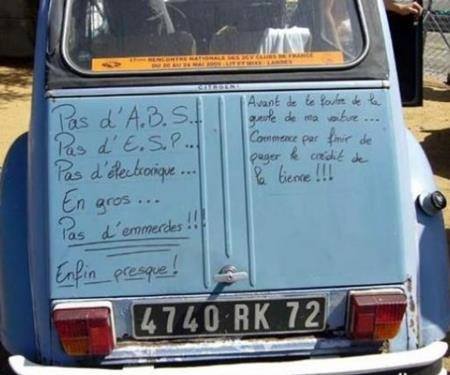 RENCONTRE NATIONALE DES 2CV CLUBS DE FRANCE
DU 20 AU 24 MAI 2009 - LIT ET MIXE - LANDES
CITROËN
Pas d'A.B.S...
Pas d'E.S.P...
Pas d'électronique...
En gros...
Pas d'emmerdes!!!
Enfin presque!
Avant de te foutre de la
gueule de ma voiture...
Commence par finir de
payer le crédit de
la tienne!!!
4740 RK 72